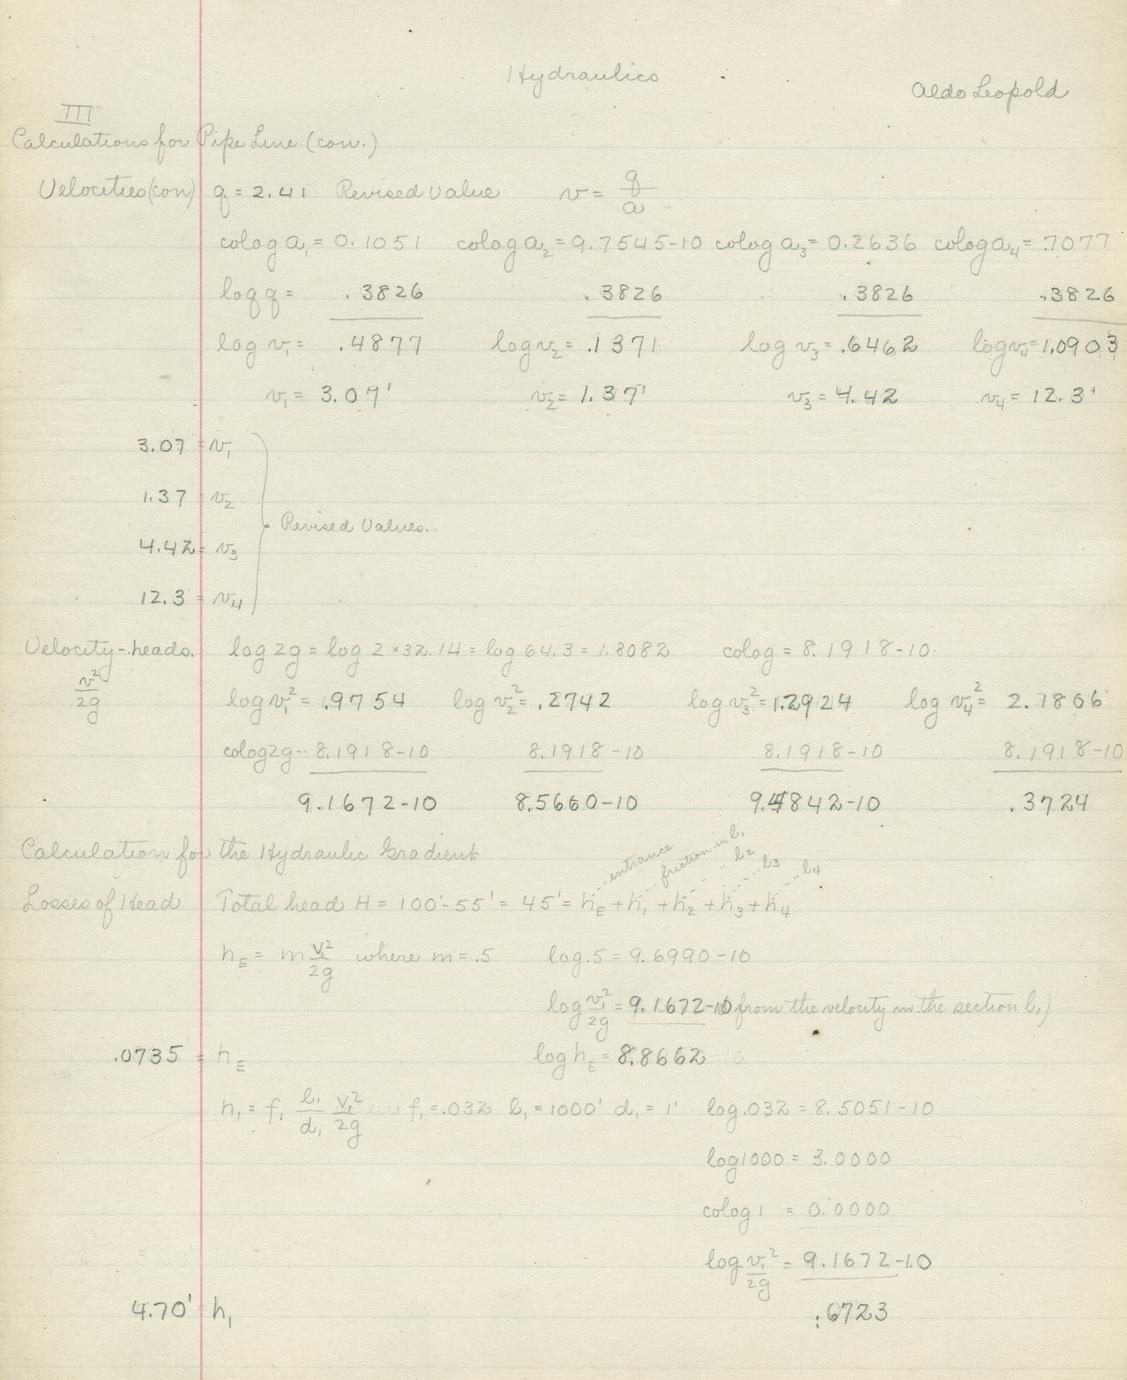 Hydraulics
Aldo Leopold
III
Calculations for Pipe Line (con.)
Velocities (con) q = 2.41 Revised Value v = q/a
colog a₁ = 0.1051 colog a₂ = 9.7545-10 colog a₃ = 0.2636 colog a₄ = .7077
log q = .3826 .3826 .3826 .3826
log v₁ = .4877 log v₂ = .1371 log v₃ = .6462 log v₄ = 1.0903
v₁ = 3.07' v₂ = 1.37' v₃ = 4.42 v₄ = 12.3'
3.07 = v₁
1.37 = v₂
Revised Values.
4.42 = v₃
12.3 = v₄
Velocity-heads. log 2g = log 2 × 32.14 = log 64.3 = 1.8082 colog = 8.1918-10
v²/2g log v₁² = .9754 log v₂² = .2742 log v₃² = 1.2924 log v₄² = 2.1806
colog 2g -- 8.1918-10 8.1918-10 8.1918-10 8.1918-10
9.1672-10 8.5660-10 9.4842-10 .3724
Calculation for the Hydraulic Gradient
entrance friction in l₁ " " l₂ " " l₃ " " l₄
Losses of Head Total head H = 100'-55' = 45' = h_E + h₁ + h₂ + h₃ + h₄
h_E = m v₁²/2g where m = .5 log .5 = 9.6990-10
log v₁²/2g = 9.1672-10 from the velocity in the section l₁)
.0735 = h_E log h_E = 8.8662-10
h₁ = f₁ l₁/d₁ v₁²/2g where f₁ = .032 l₁ = 1000' d₁ = 1' log .032 = 8.5051-10
log 1000 = 3.0000
colog 1 = 0.0000
log v₁²/2g = 9.1672-10
4.70' h₁ .6723